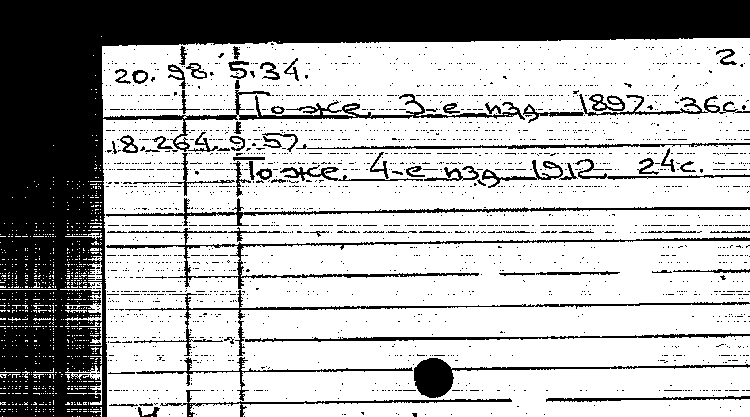 2.
20.98.5.34.
То же. 3-е изд 1897. 36с.
18.264.9.57.
То же. 4-е изд 1912. 24с.